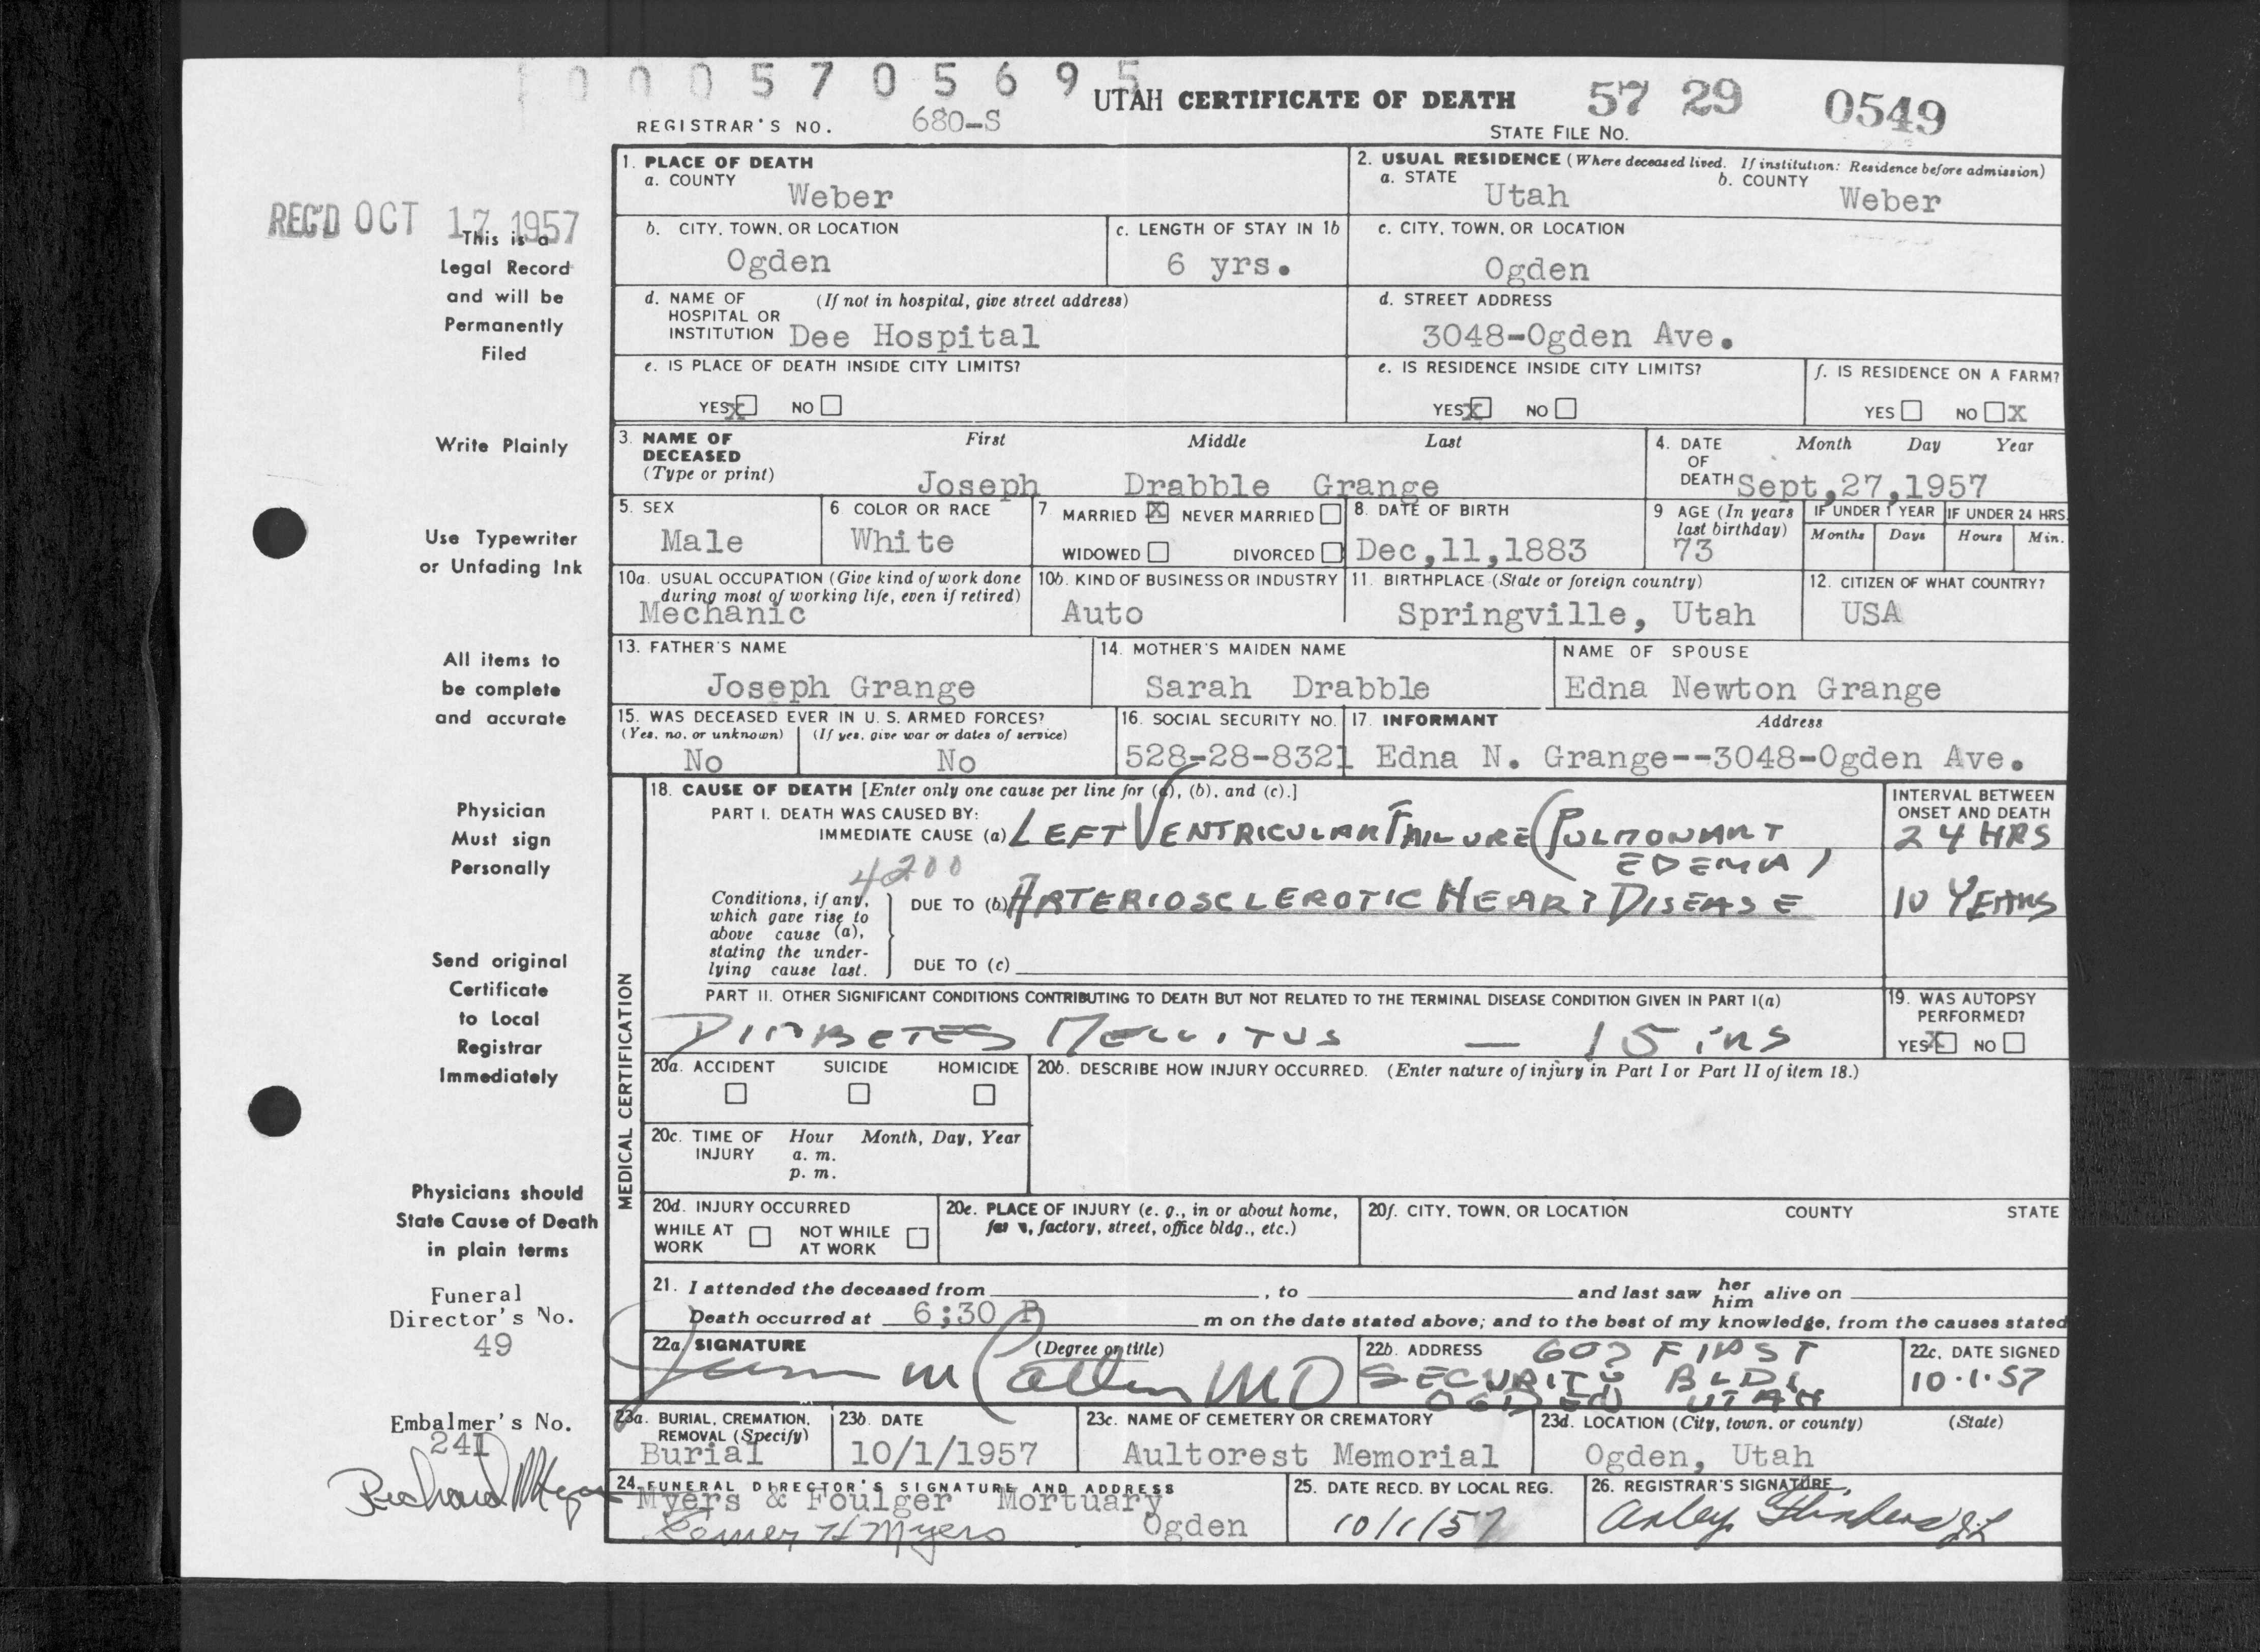 1 0 0 0 5 7 0 5 6 9 5
UTAH CERTIFICATE OF DEATH 57 29 0549
REGISTRAR'S NO. 680-S STATE FILE NO.
REC'D OCT 17 1957
This is a
Legal Record
and will be
Permanently
Filed
Write Plainly
Use Typewriter
or Unfading Ink
All items to
be complete
and accurate
Physician
Must sign
Personally
Send original
Certificate
to Local
Registrar
Immediately
Physicians should
State Cause of Death
in plain terms
Funeral
Director's No.
49
Embalmer's No.
241
1. PLACE OF DEATH
a. COUNTY Weber
2. USUAL RESIDENCE (Where deceased lived. If institution: Residence before admission)
a. STATE Utah b. COUNTY Weber
b. CITY, TOWN, OR LOCATION Ogden
c. LENGTH OF STAY IN 1b 6 yrs.
c. CITY, TOWN, OR LOCATION Ogden
d. NAME OF (If not in hospital, give street address)
HOSPITAL OR
INSTITUTION Dee Hospital
d. STREET ADDRESS
3048-Ogden Ave.
e. IS PLACE OF DEATH INSIDE CITY LIMITS?
YES X NO
e. IS RESIDENCE INSIDE CITY LIMITS?
YES X NO
f. IS RESIDENCE ON A FARM?
YES NO X
3. NAME OF DECEASED (Type or print) First Middle Last
Joseph Drabble Grange
4. DATE OF DEATH Month Day Year
Sept,27,1957
5. SEX Male
6. COLOR OR RACE White
7. MARRIED X NEVER MARRIED
WIDOWED DIVORCED
8. DATE OF BIRTH Dec,11,1883
9 AGE (In years last birthday) 73
IF UNDER 1 YEAR Months Days
IF UNDER 24 HRS. Hours Min.
10a. USUAL OCCUPATION (Give kind of work done during most of working life, even if retired)
Mechanic
10b. KIND OF BUSINESS OR INDUSTRY
Auto
11. BIRTHPLACE (State or foreign country)
Springville, Utah
12. CITIZEN OF WHAT COUNTRY?
USA
13. FATHER'S NAME
Joseph Grange
14. MOTHER'S MAIDEN NAME
Sarah Drabble
NAME OF SPOUSE
Edna Newton Grange
15. WAS DECEASED EVER IN U. S. ARMED FORCES?
(Yes, no, or unknown) (If yes, give war or dates of service)
No No
16. SOCIAL SECURITY NO.
528-28-8321
17. INFORMANT Address
Edna N. Grange--3048-Ogden Ave.
MEDICAL CERTIFICATION
18. CAUSE OF DEATH [Enter only one cause per line for (a), (b), and (c).]
PART I. DEATH WAS CAUSED BY:
IMMEDIATE CAUSE (a) LEFT VENTRICULAR FAILURE (PULMONARY
EDEMA)
4200
Conditions, if any, which gave rise to above cause (a), stating the underlying cause last.
DUE TO (b) ARTERIOSCLEROTIC HEART DISEASE
DUE TO (c)
INTERVAL BETWEEN
ONSET AND DEATH
24 HRS
10 YEARS
PART II. OTHER SIGNIFICANT CONDITIONS CONTRIBUTING TO DEATH BUT NOT RELATED TO THE TERMINAL DISEASE CONDITION GIVEN IN PART I(a)
DIABETES MELLITUS — 15
19. WAS AUTOPSY
PERFORMED?
YES X NO
20a. ACCIDENT SUICIDE HOMICIDE
20b. DESCRIBE HOW INJURY OCCURRED. (Enter nature of injury in Part I or Part II of item 18.)
20c. TIME OF INJURY Hour Month, Day, Year
a. m.
p. m.
20d. INJURY OCCURRED
WHILE AT WORK NOT WHILE AT WORK
20e. PLACE OF INJURY (e. g., in or about home, factory, street, office bldg., etc.)
20f. CITY, TOWN, OR LOCATION COUNTY STATE
21. I attended the deceased from , to and last saw her him alive on
Death occurred at 6;30 P m on the date stated above; and to the best of my knowledge, from the causes stated
22a. SIGNATURE (Degree or title)
MD
22b. ADDRESS 602 FIRST
SECURITY BLDG
OGDEN UTAH
22c. DATE SIGNED
10·1·57
23a. BURIAL, CREMATION, REMOVAL (Specify)
Burial
23b. DATE
10/1/1957
23c. NAME OF CEMETERY OR CREMATORY
Aultorest Memorial
23d. LOCATION (City, town, or county) (State)
Ogden, Utah
24. FUNERAL DIRECTOR'S SIGNATURE AND ADDRESS
Myers & Foulger Mortuary
Ogden
H Myers
25. DATE RECD. BY LOCAL REG.
10/1/57
26. REGISTRAR'S SIGNATURE